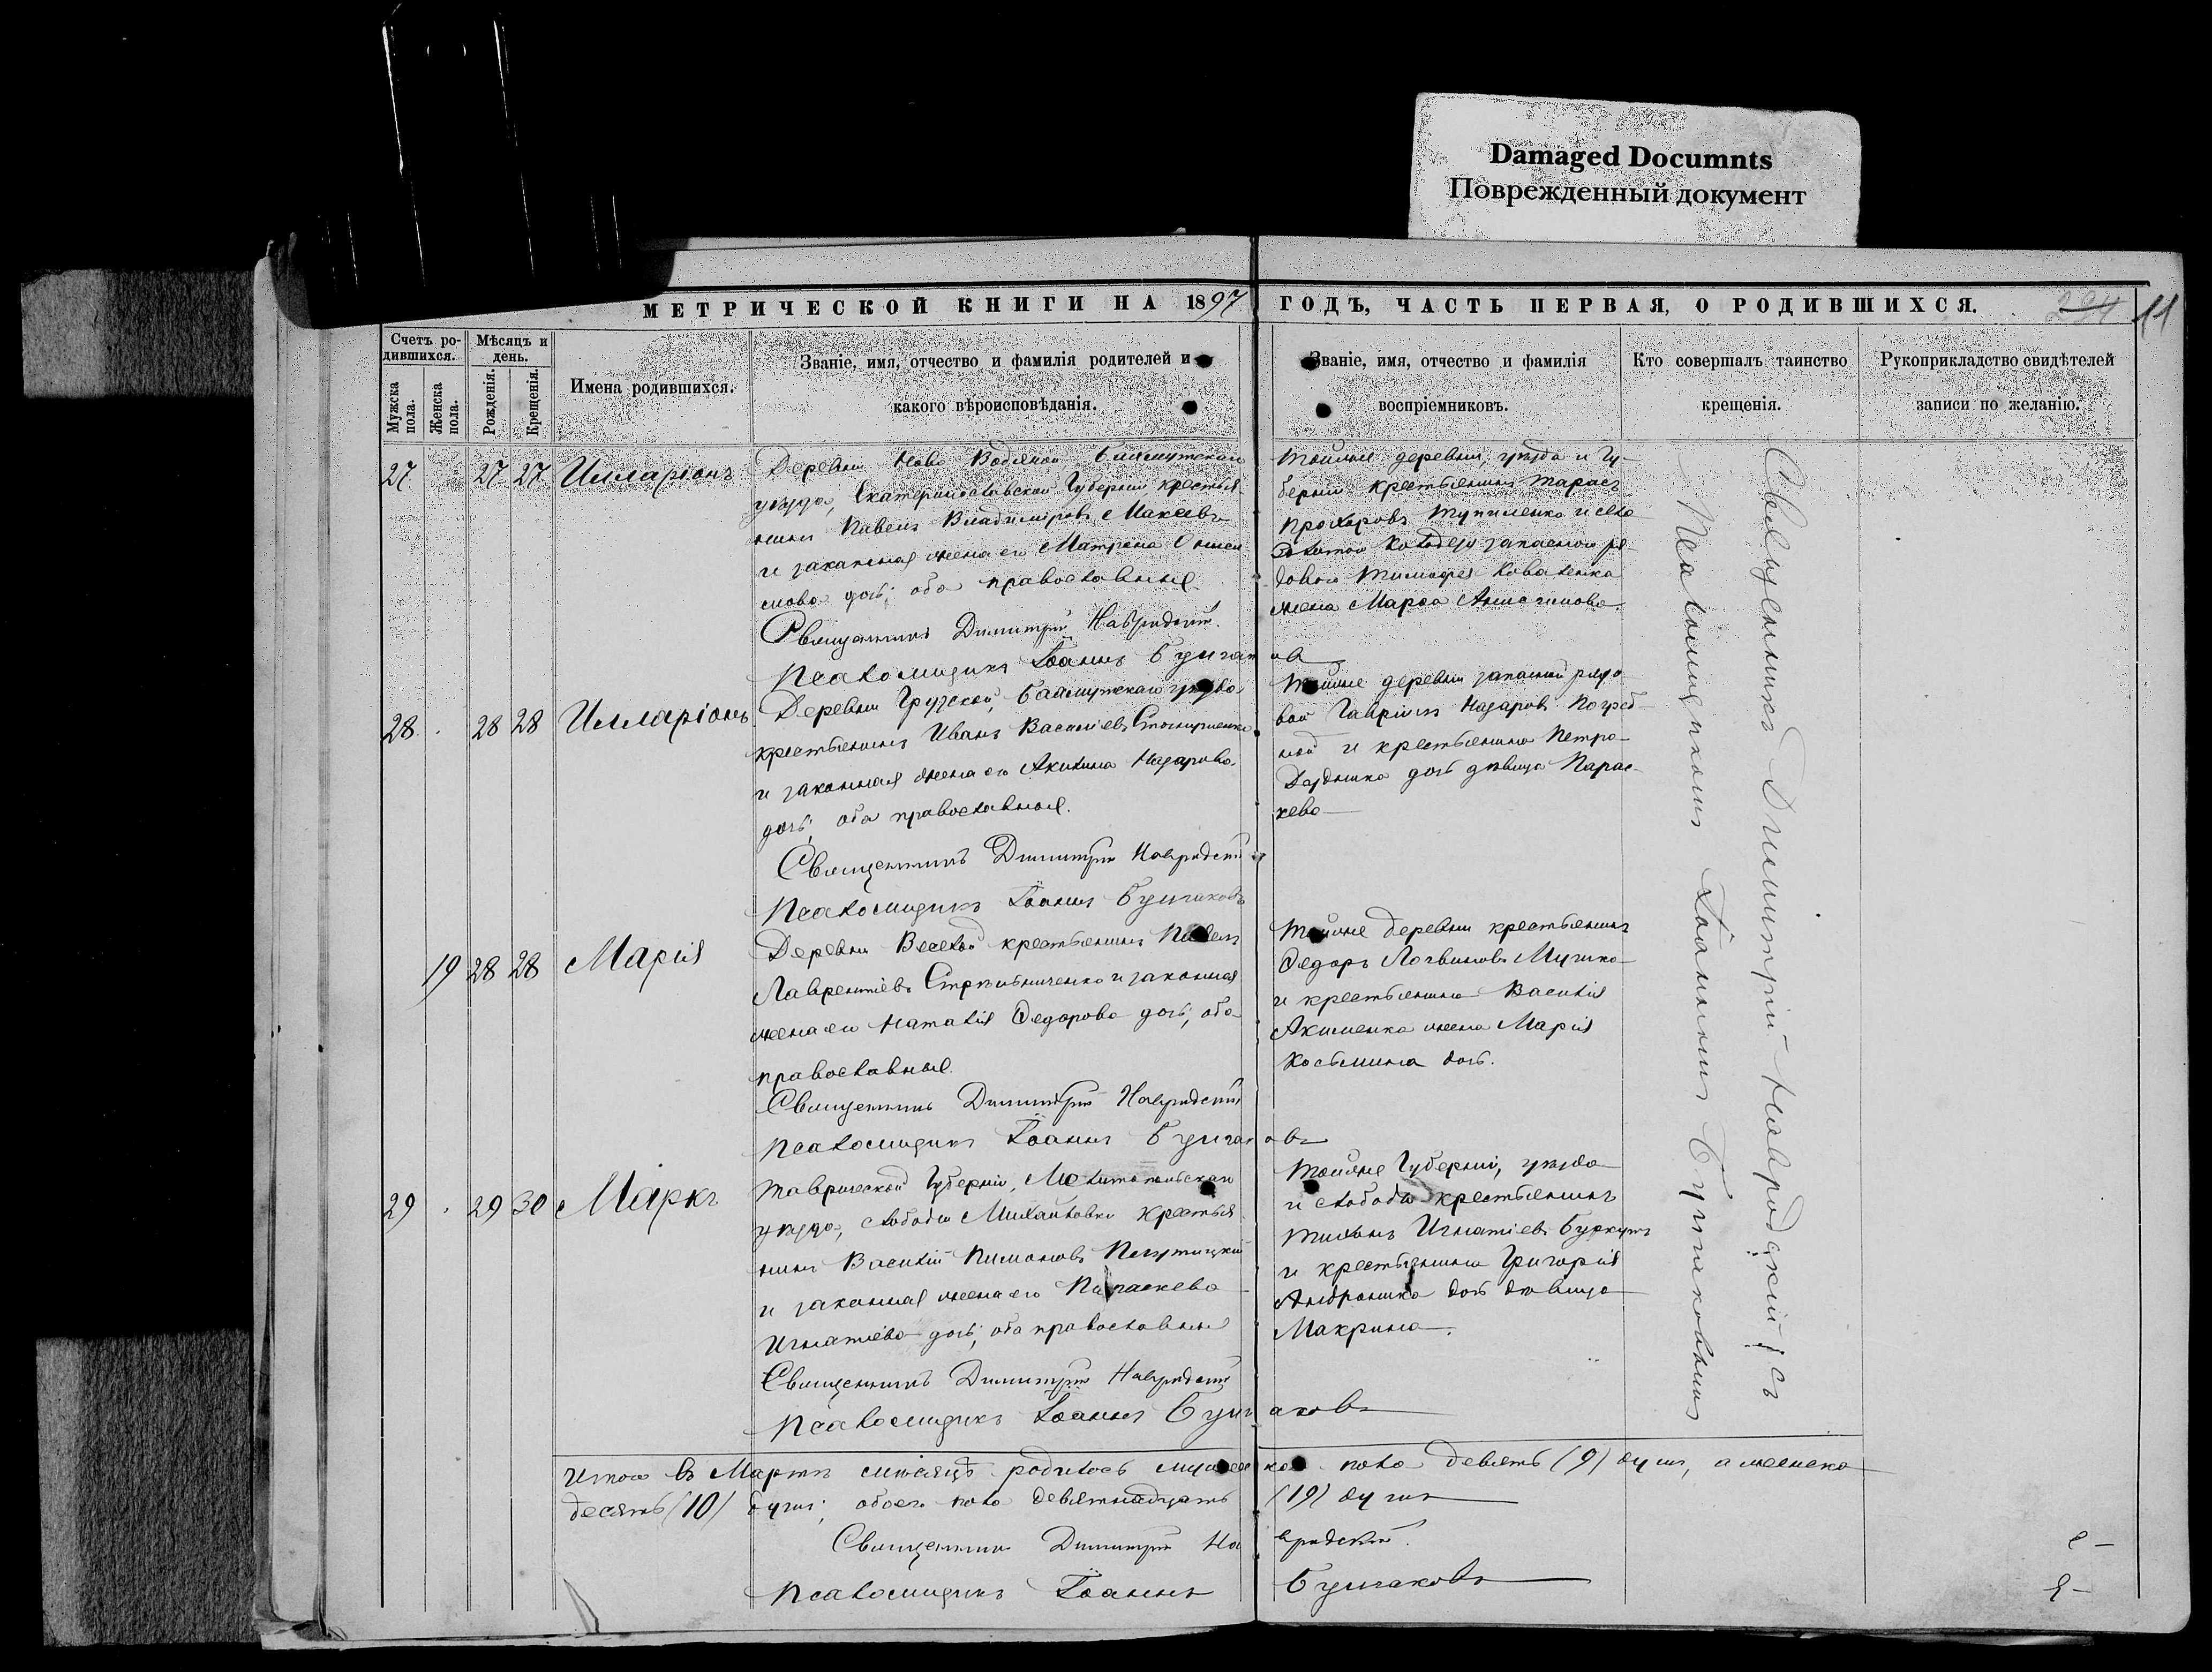 Damaged Documnts
Поврежденный документ
МЕТРИЧЕСКОЙ КНИГИ НА 1897 ГОДЪ, ЧАСТЬ ПЕРВАЯ, О РОДИВШИХСЯ.
11
Счетъ родившихся.
Мужска пола.
Женска пола.
Мѣсяцъ и день.
Рожденія.
Крещенія.
Имена родившихся.
Званіе, имя, отчество и фамилія родителей и
какого вѣроисповѣданія.
Званіе, имя, отчество и фамилія
воспріемниковъ.
Кто совершалъ таинство
крещенія.
Рукоприкладство свидѣтелей
записи по желанію.
27 27 27 Илларіонъ
Деревни Ново Водяной Бахмутскаго
уѣзда, Екатеринославской Губерніи крестья-
нинъ Павелъ Владиміровъ Макеевъ
и законная жена его Матрона
дочь; оба православные.
Священникъ Димитрій Навродскій.
Псаломщикъ Іоаннъ Булгаковъ
Тойже деревни, уѣзда и Гу-
берніи крестьянинъ Тарасъ
Прохоровъ и села
Золотой Колодезь запаснаго ря-
доваго Тимофея Коваленка
жена Марѳа
28 28 28 Илларіонъ
Деревни Грузской, Бахмутскаго уѣзда
крестьянинъ Иванъ Васильевъ
и законная жена его Акилина Назарова
дочь; оба православные.
Священникъ Димитрій Навродскій
Псаломщикъ Іоаннъ Булгаковъ
Тойже деревни запасный рядо-
вой Гавріилъ Назаровъ Погреб-
ной и крестьянина Петра
дочь дѣвица Парас-
кева
19 28 28 Марія
Деревни Веселой крестьянинъ Павелъ
Лаврентіевъ и законная
жена его Наталія Ѳедорова дочь, оба
православные.
Священникъ Димитрій Навродскій
Псаломщикъ Іоаннъ Булгаковъ
Тойже деревни крестьянинъ
Ѳедоръ Логвиновъ
и крестьянина Василія
Акименка жена Марія
Косьмина дочь.
29 29 30 Маркъ
Таврической Губерніи, Мелитопольскаго
уѣзда, слободы Михайловки крестья-
нинъ Василій Пимоновъ
и законная жена его Параскева
Игнатіева дочь; оба православные
Священникъ Димитрій Навродскій
Псаломщикъ Іоаннъ Булгаковъ
Тойже Губерніи, уѣзда
и слободы крестьянинъ
Тихонъ Игнатіевъ Буркутъ
и крестьянина Григорія
дочь дѣвица
Макрина.
Священникъ Димитрій Навродскій съ
Псаломщикомъ Іоанномъ Булгаковымъ
Итого въ Мартѣ мѣсяцѣ родилось мужеска пола девять (9) душъ, а женска
десять (10) душъ; обоего пола девятнадцать (19) душъ
Священникъ Димитрій Навродскій.
Псаломщикъ Іоаннъ Булгаковъ